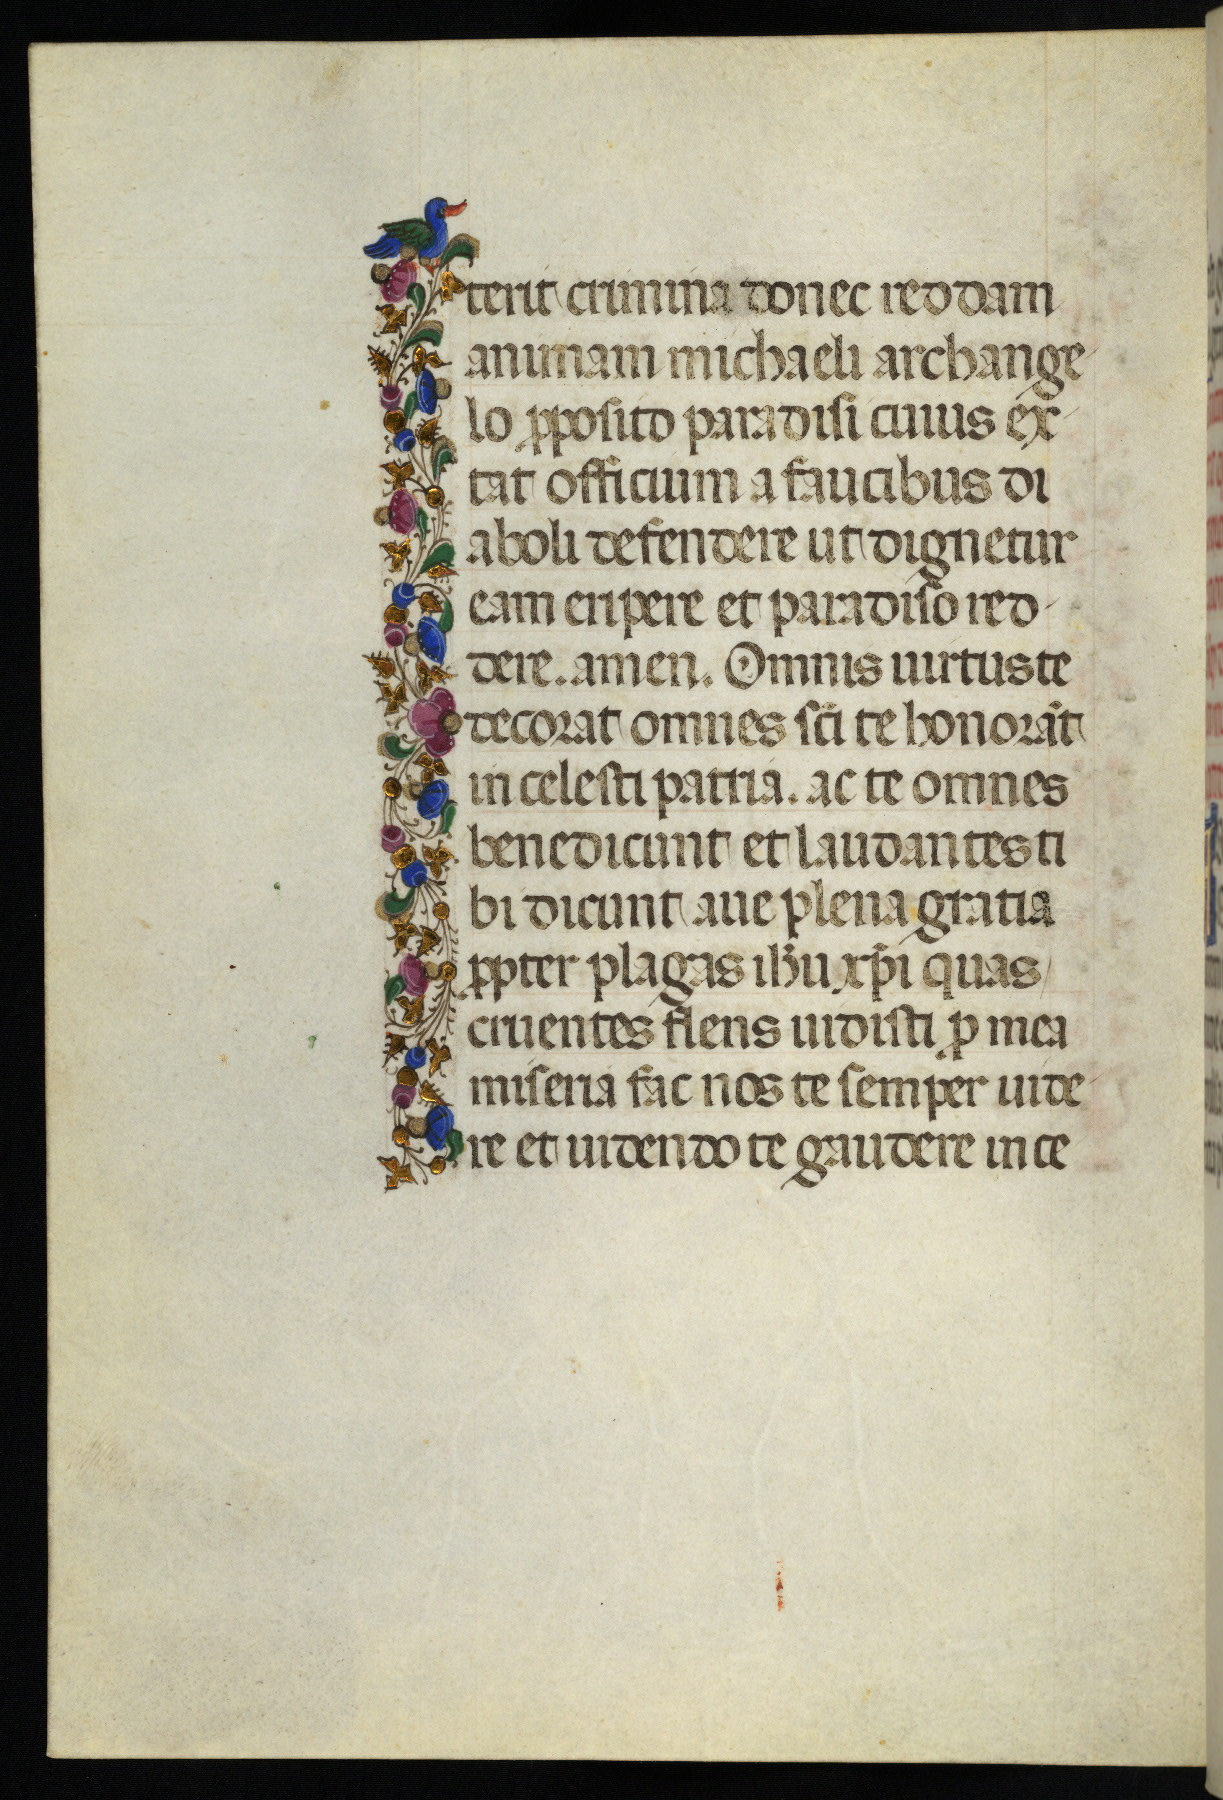 terit crimina donec reddam
animam michaeli archange
lo p̱posito paradisi cuius ex
tat officium a faucibus di
aboli defendere ut dignetur
eam eripere et paradiso red
dere. amen. Omnis uirtus te
decorat omnes sc̄i te honorāt
in celesti patria. ac te omnes
benedicunt et laudantes ti
bi dicunt aue plena gratia
ꝓpter plagas ih̄u xp̄i quas
cruentes flens uidisti ꝓ mea
miseria fac nos te semper uide
re et uidendo te gaudere in ce